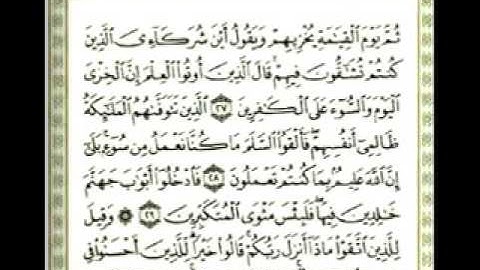 ثُمَّ يَوْمَ ٱلْقِيَٰمَةِ يُخْزِيهِمْ وَيَقُولُ أَيْنَ شُرَكَآءِىَ ٱلَّذِينَ
كُنتُمْ تُشَٰٓقُّونَ فِيهِمْ قَالَ ٱلَّذِينَ أُوتُوا۟ ٱلْعِلْمَ إِنَّ ٱلْخِزْىَ
ٱلْيَوْمَ وَٱلسُّوٓءَ عَلَى ٱلْكَٰفِرِينَ ٢٧ ٱلَّذِينَ تَتَوَفَّىٰهُمُ ٱلْمَلَٰٓئِكَةُ
ظَالِمِىٓ أَنفُسِهِمْ فَأَلْقَوُا۟ ٱلسَّلَمَ مَا كُنَّا نَعْمَلُ مِن سُوٓءٍۭ بَلَىٰٓ
إِنَّ ٱللَّهَ عَلِيمٌۢ بِمَا كُنتُمْ تَعْمَلُونَ ٢٨ فَٱدْخُلُوٓا۟ أَبْوَٰبَ جَهَنَّمَ
خَٰلِدِينَ فِيهَا فَلَبِئْسَ مَثْوَى ٱلْمُتَكَبِّرِينَ ٢٩ ۞ وَقِيلَ
لِلَّذِينَ ٱتَّقَوْا۟ مَاذَآ أَنزَلَ رَبُّكُمْ قَالُوا۟ خَيْرًا لِّلَّذِينَ أَحْسَنُوا۟ فِى